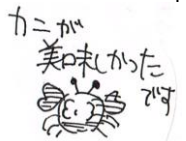 カニが
美味しかった
です